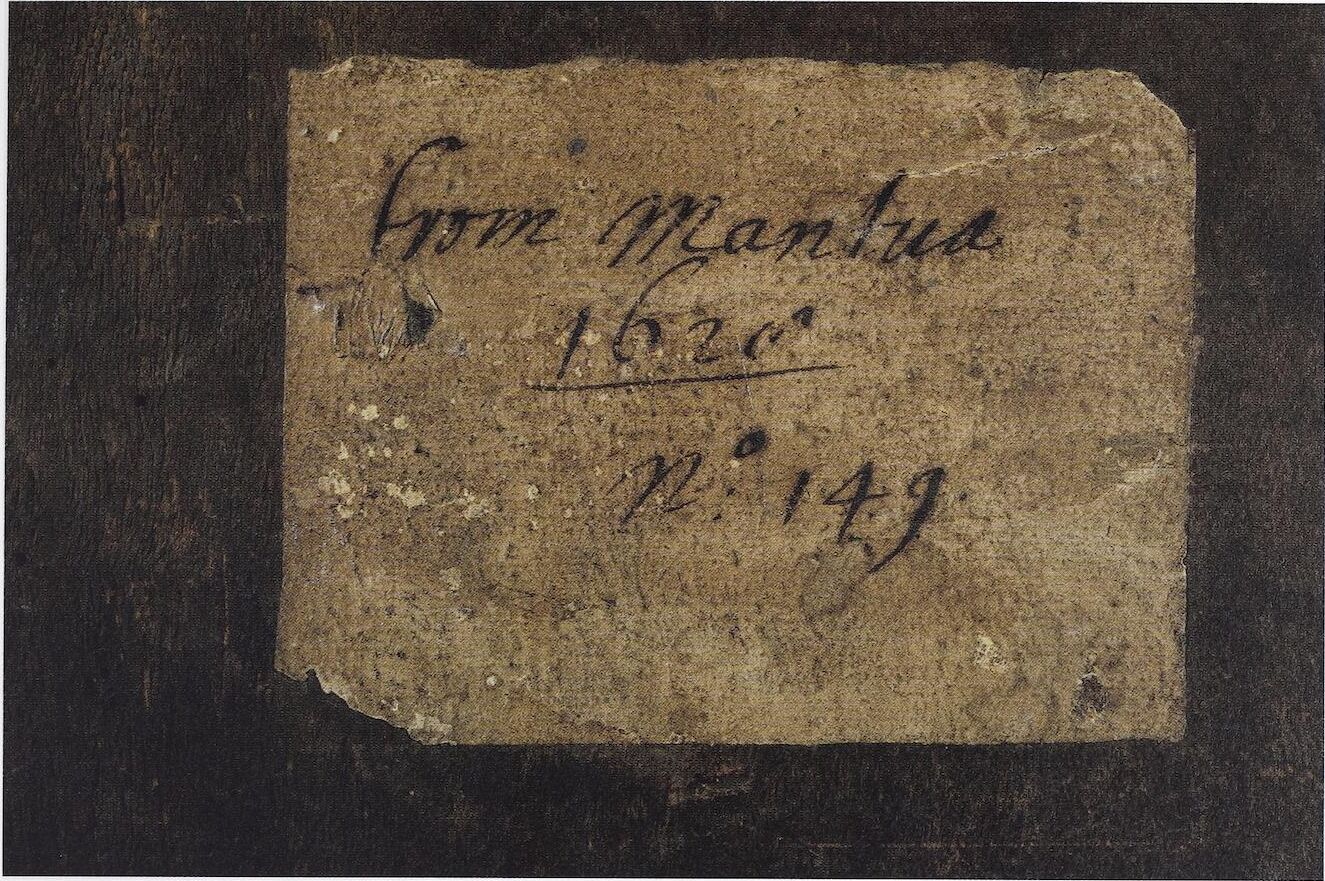 from Mantua
1628
No. 149.